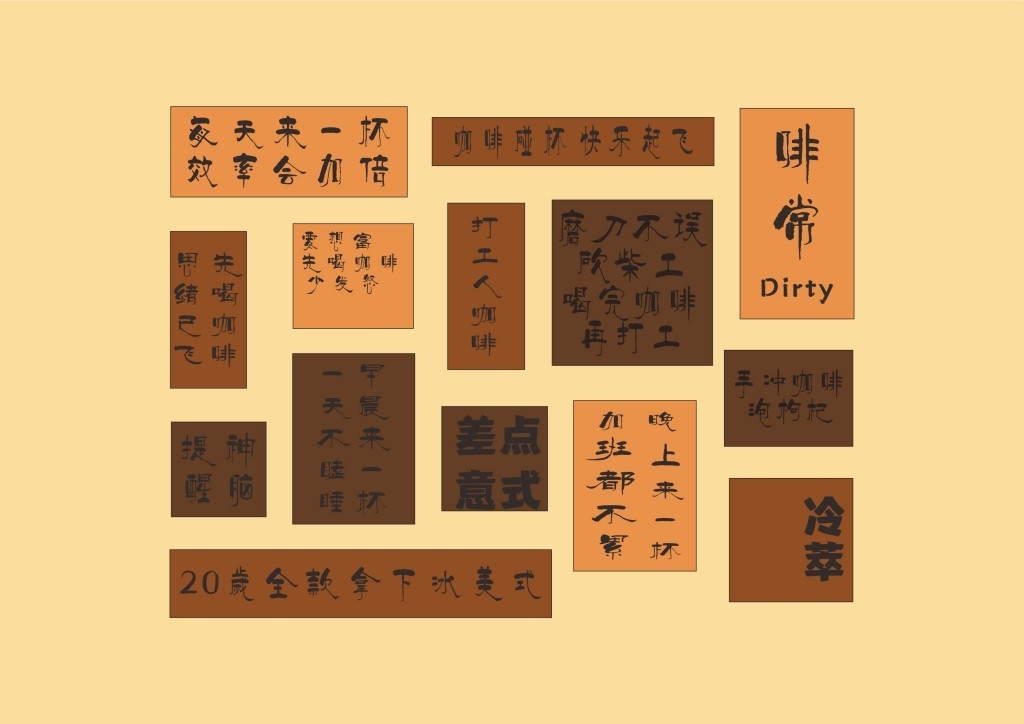 每天来一杯
效率会加倍
咖啡碰杯快乐起飞
啡常
Dirty
先喝咖啡
思绪已飞
想富
先喝咖啡
少发怒
打工人咖啡
磨刀不误
砍柴工
喝完咖啡
再打工
早晨来一杯
一天不瞌睡
手冲咖啡
泡枸杞
提神
醒脑
差点
意式
晚上来一杯
加班都不累
冷萃
20歲全款拿下冰美式